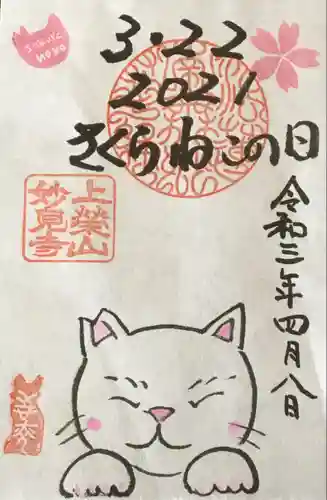 SAKURA
NEKO
3・22
2021
さくらねこの日
令和三年四月八日
上榮山
妙見寺